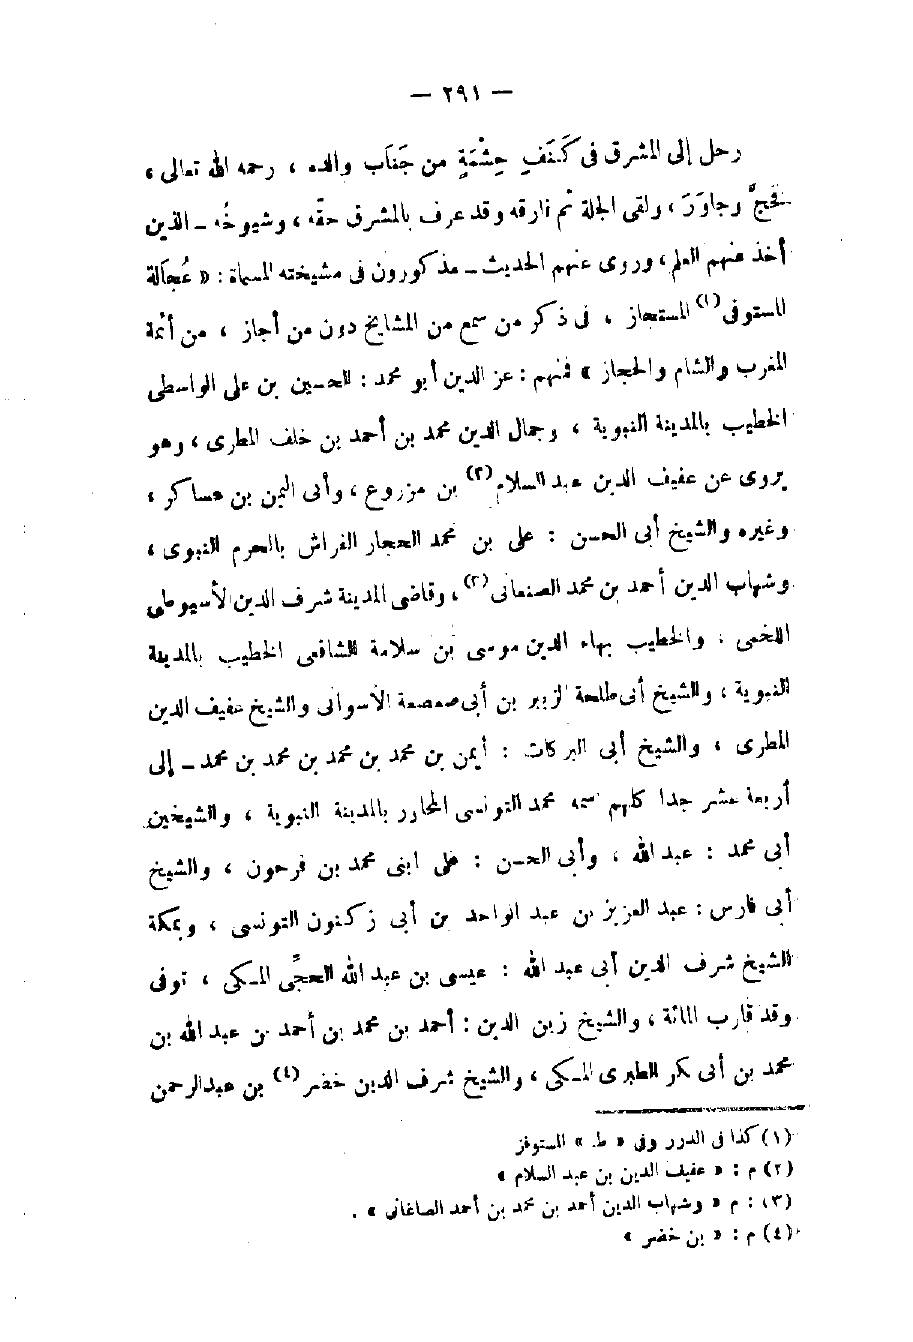 — ٢٩١ —
رحل إلى المشرق فى كَنَفِ حِشْمَةٍ من جَنَاب والده ، رحمه الله تعالى ،
فحجَّ وجاوَرَ ، ولقى الجلة ثم فارقه وقد عرف بالمشرق حقّه ، وشيوخُه ـ الذين
أخذ عنهم العلم ، وروى عنهم الحديث ـ مذكورون فى مشيخته المسماة : « عُجاَلة
المستوفى(١) المستجاز ، فى ذكر من سمع من المشايخ دون من أجاز ، من أئمة
المغرب والشام والحجاز » فمنهم : عز الدين أبو محمد : الحسين بن على الواسطى
الخطيب بالمدينة النبوية ، وجمال الدين محمد بن أحمد بن خلف المطرى ، وهو
يروى عن عفيف الدين عبد السلام(٢) بن مزروع ، وأبى اليمن بن عساكر ،
وغيره والشيخ أبى الحسن : على بن محمد الحجار الفراش بالحرم النبوى ،
وشهاب الدين أحمد بن محمد الصنعانى(٣) ، وقاضى المدينة شرف الدين الأسيوطى
اللخمى ، والخطيب بهاء الدين موسى بن سلامة الشافعى الخطيب بالمدينة
النبوية ، والشيخ أبى طلحة الزبير بن أبى صعصعة الأسوانى والشيخ عفيف الدين
المطرى ، والشيخ أبى البركات : أيمن بن محمد بن محمد بن محمد بن محمد ـ إلى
أربعة عشر جدا كلهم اسمه محمد التونسى المجاور بالمدينة النبوية ، والشيخين
أبى محمد : عبد الله ، وأبى الحسن : على ابنى محمد بن فرحون ، والشيخ
أبى فارس : عبد العزيز بن عبد الواحد بن أبى زكنون التونسى ، وبمكة
الشيخ شرف الدين أبى عبد الله : عيسى بن عبد الله الحجِّى المـكى ، توفى
وقد قارب المائة ، والشيخ زين الدين : أحمد بن محمد بن أحمد بن عبد الله بن
محمد بن أبى بكر الطبرى المـكى ، والشيخ شرف الدين خضر(٤) بن عبدالرحمن
(١) كذا فى الدرر وفى « ط » المستوفز
(٢) م : « عفيف الدين بن عبد السلام »
(٣) : م « وشهاب الدين أحمد بن محمد بن أحمد الصاغانى » .
(٤) م : « بن خضر »